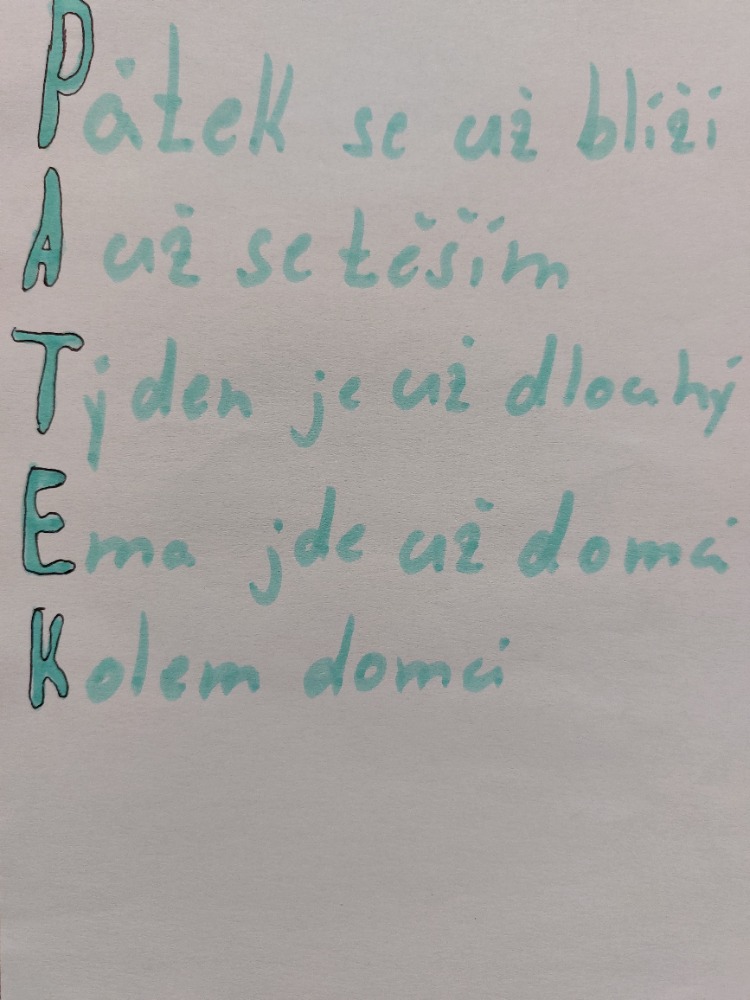 Pátek se už blíží
A už se těším
Týden je už dlouhý
Ema jde už domů
Kolem domů